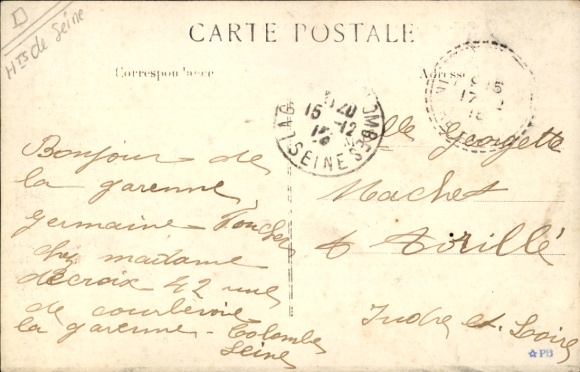 D
Hts de Seine
CARTE POSTALE
Correspondance
Adresse
LAG
OMBES
SEINE
15 -12
17
Bonjour de
la garenne
germaine Foucher
chez madame
decroix 42 rue
de courbevoie
la garenne - Colombes
Seine
lle Georgette
Machet
à
Indre et Loire
PB